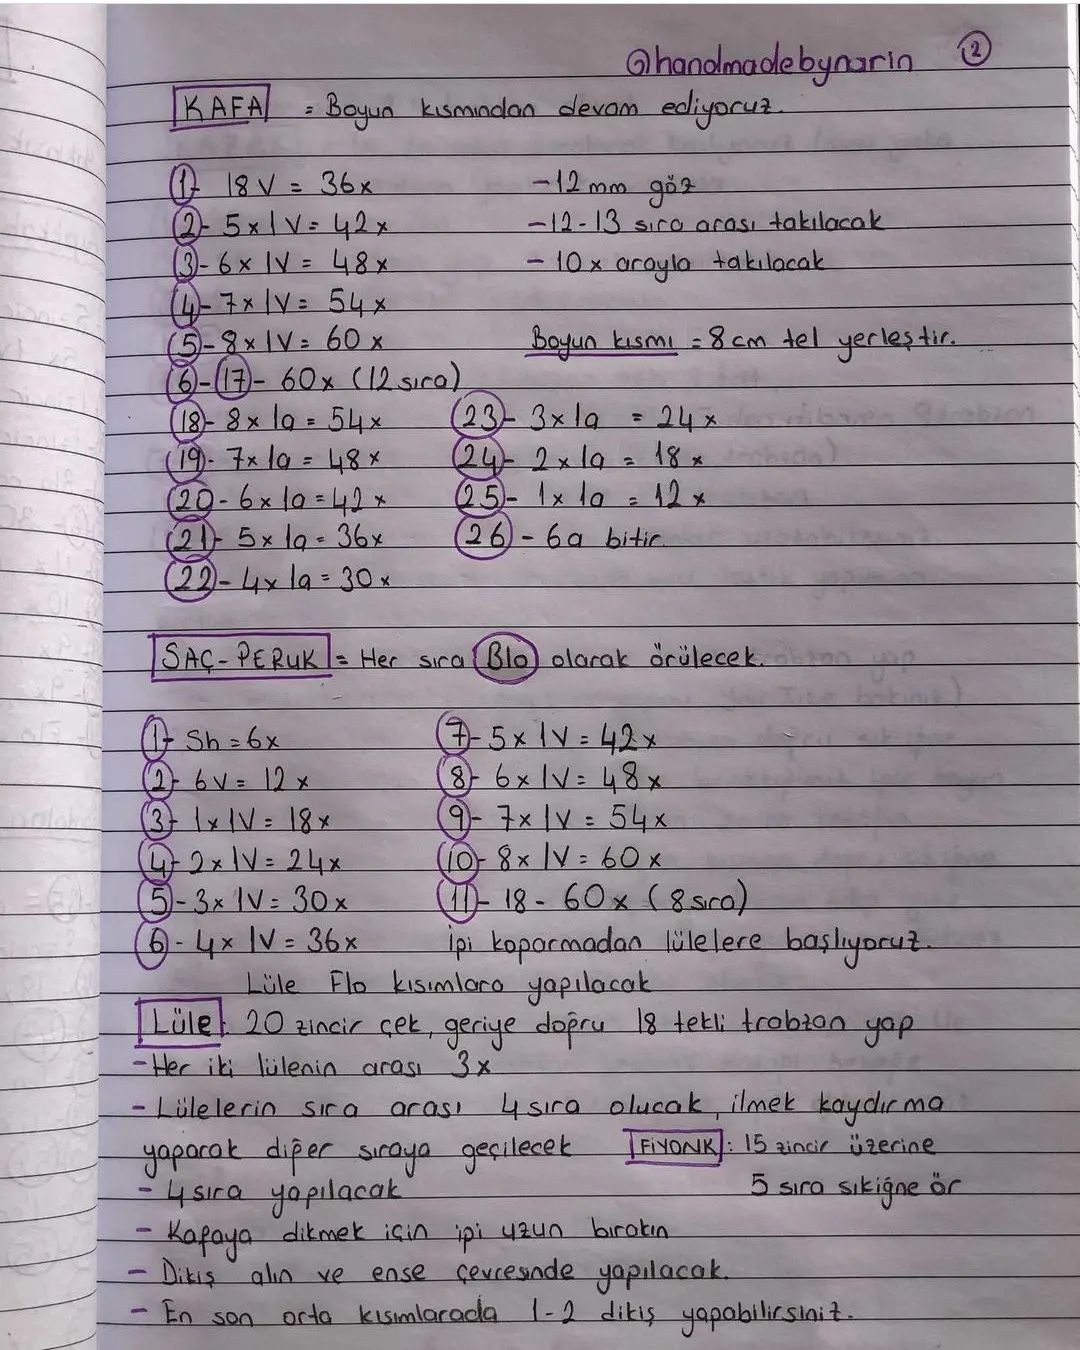 @handmadebynarin 2
KAFA = Boyun kısmından devam ediyoruz.
1- 18 V = 36x
2- 5x1V = 42x
3- 6x1V = 48x
4- 7x1V = 54x
5- 8x1V = 60x
6-17- 60x (12 sıra)
18- 8x1a = 54x
19- 7x1a = 48x
20- 6x1a = 42x
21- 5x1a = 36x
22- 4x1a = 30x
-12 mm göz
-12-13 sıra arası takılacak
- 10x arayla takılacak
Boyun kısmı = 8 cm tel yerleştir.
23- 3x1a = 24x
24- 2x1a = 18x
25- 1x1a = 12x
26- 6a bitir.
SAÇ-PERUK = Her sıra Blo olarak örülecek.
1- Sh = 6x
2- 6V = 12x
3- 1x1V = 18x
4- 2x1V = 24x
5- 3x1V = 30x
6- 4x1V = 36x
7- 5x1V = 42x
8- 6x1V = 48x
9- 7x1V = 54x
10- 8x1V = 60x
11- 18- 60x (8 sıra)
İpi koparmadan lülelere başlıyoruz.
Lüle Flo kısımlara yapılacak
Lüle: 20 zincir çek, geriye doğru 18 tekli trabzan yap
-Her iki lülenin arası 3x
- Lülelerin sıra arası 4 sıra olucak, ilmek kaydırma
yaparak diğer sıraya geçilecek
- 4 sıra yapılacak
FİYONK: 15 zincir üzerine
5 sıra sıkiğne ör
- Kafaya dikmek için ipi uzun bırakın
- Dikiş alın ve ense çevresinde yapılacak.
- En son orta kısımlarada 1-2 dikiş yapabilirsiniz.